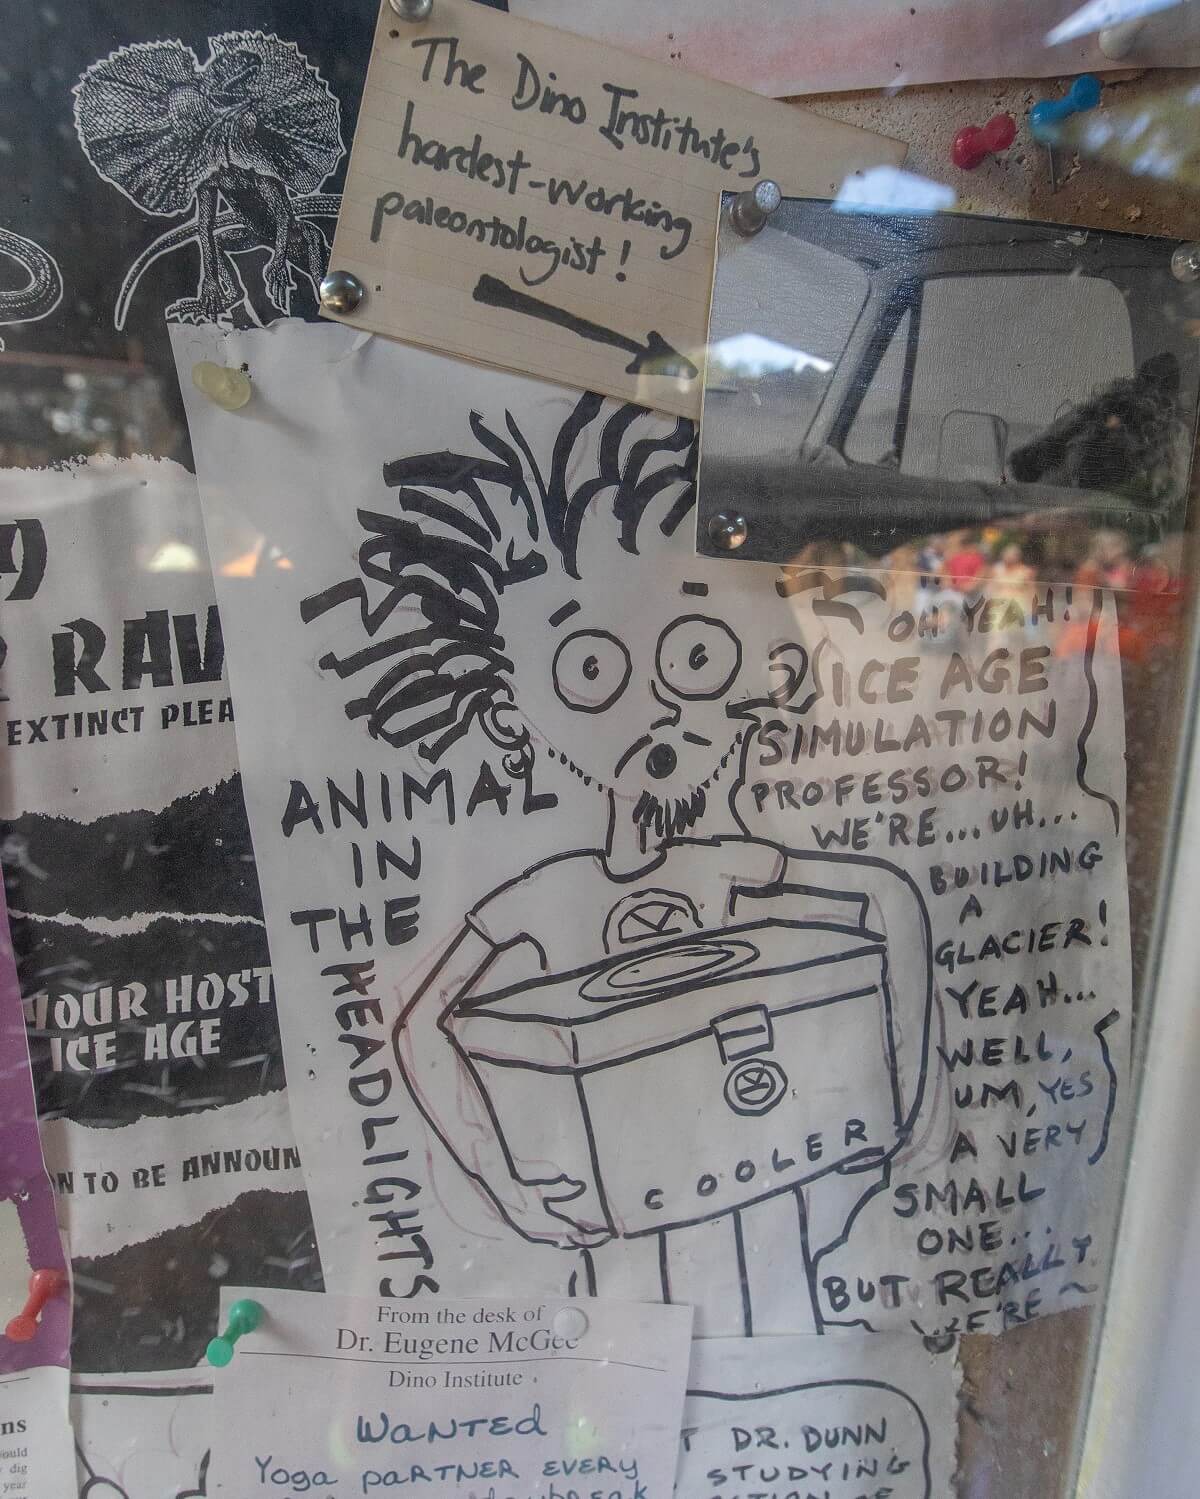 The Dino Institute's
hardest-working
paleontologist!
RAV
EXTINCT PLEA
YOUR HOST
ICE AGE
ON TO BE ANNOUN
ANIMAL
IN
THE
HEADLIGHTS
OH YEAH!
ICE AGE
SIMULATION
PROFESSOR!
WE'RE... UH...
BUILDING
A
GLACIER!
YEAH...
WELL,
UM, YES
A VERY
SMALL
ONE...
BUT REALLY
WE'RE ~
COOLER
From the desk of
Dr. Eugene McGee
Dino Institute
WANTED
Yoga PARTNER EVERY
DR. DUNN
STUDYING
ns
ould
dig
year